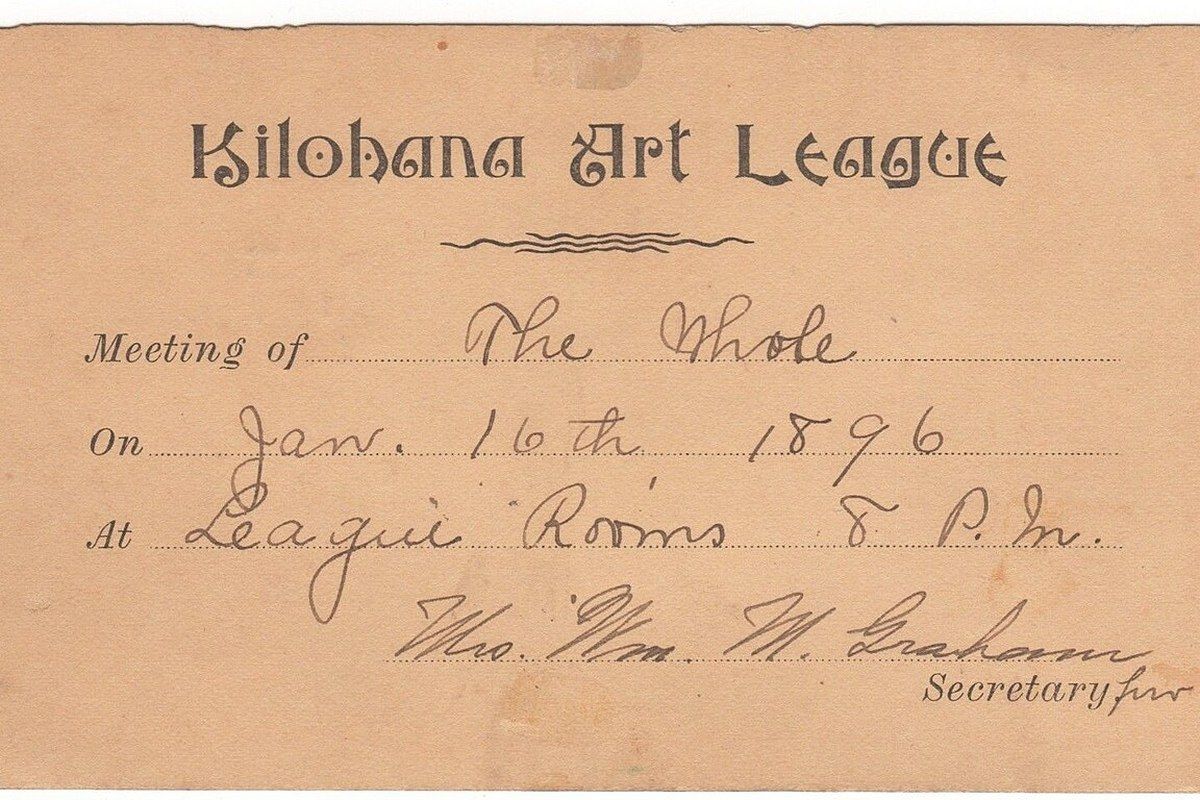 Kilohana Art League
Meeting of The Whole
On Jan. 16th 1896
At League Rooms 8 P.M.
Mrs. Wm. M. Graham
Secretary